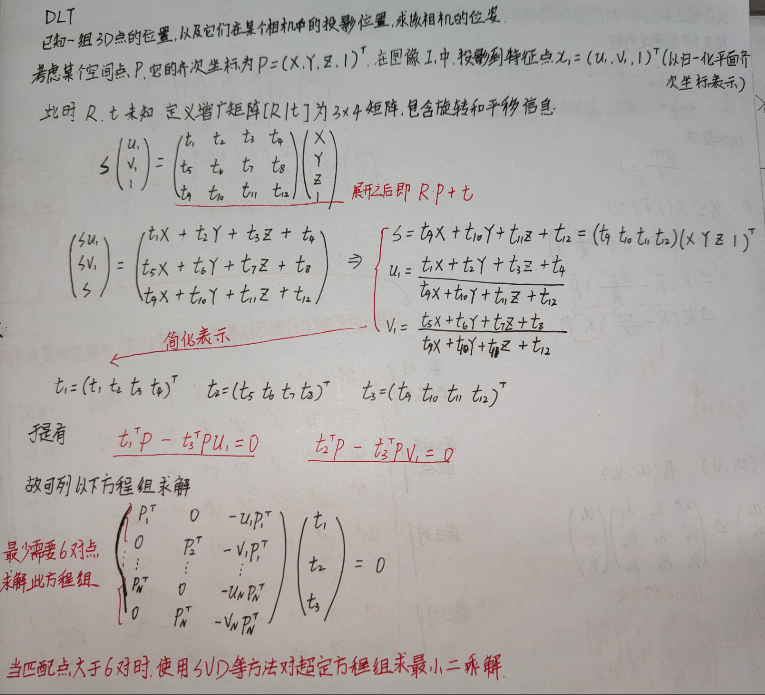 DLT
已知一组3D点的位置,以及它们在某个相机中的投影位置,求该相机的位姿
考虑某个空间点P,它的齐次坐标为P=(X,Y,Z,1)ᵀ.在图像I₁中,投影到特征点x₁=(u₁,v₁,1)ᵀ(以归一化平面齐
次坐标表示)
此时 R,t未知 定义增广矩阵[R|t]为3×4矩阵,包含旋转和平移信息.
S (u₁ v₁ 1) = (t₁ t₂ t₃ t₄ t₅ t₆ t₇ t₈ t₉ t₁₀ t₁₁ t₁₂) (X Y Z 1)
展开之后即 RP+t
(Su₁ Sv₁ S) = (t₁X + t₂Y + t₃Z + t₄ t₅X + t₆Y + t₇Z + t₈ t₉X + t₁₀Y + t₁₁Z + t₁₂) ⇒
S = t₉X + t₁₀Y + t₁₁Z + t₁₂ = (t₉ t₁₀ t₁₁ t₁₂)(X Y Z 1)ᵀ
u₁ = t₁X + t₂Y + t₃Z + t₄ / t₉X + t₁₀Y + t₁₁Z + t₁₂
v₁ = t₅X + t₆Y + t₇Z + t₈ / t₉X + t₁₀Y + t₁₁Z + t₁₂
简化表示
t₁=(t₁ t₂ t₃ t₄)ᵀ t₂=(t₅ t₆ t₇ t₈)ᵀ t₃=(t₉ t₁₀ t₁₁ t₁₂)ᵀ
于是有 t₁ᵀP − t₃ᵀPu₁ = 0 t₂ᵀP − t₃ᵀPv₁ = 0
故可列以下方程组求解
P₁ᵀ 0 −u₁P₁ᵀ
0 P₂ᵀ −v₁P₁ᵀ
⋮ ⋮ ⋮
P_Nᵀ 0 −u_N P_Nᵀ
0 P_Nᵀ −v_N P_Nᵀ
(t₁ t₂ t₃) = 0
最少需要6对点
求解此方程组
当匹配点大于6对时,使用SVD等方法对超定方程组求最小二乘解.